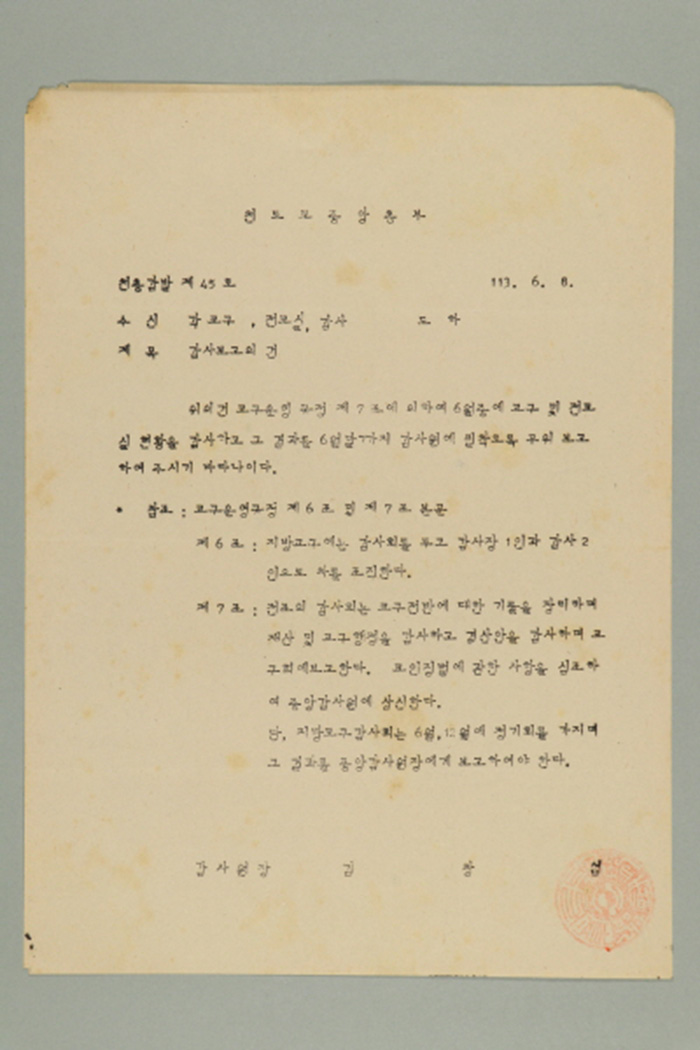 천도교중앙총부
천총감발 제 45 호 113. 6. 8.
수 신 각 교구, 전교실, 감사 도 하
제 목 감사보고의 건
위의건 교구운영 규정 제 7 조에 의하여 6월중에 교구 및 전교
실 현황을 감사하고 그 결과를 6월말까지 감사원에 필착토록 우위 보고
하여 주시기 바라나이다.
* 참조 : 교구운영규정 제 6 조 및 제 7 조 본문
제 6 조 : 지방교구에는 감사회를 두고 감사장 1인과 감사 2
인으로 차를 조직한다.
제 7 조 : 전조의 감사회는 교구전반에 대한 기물을 장리하며
재산 및 교구행정을 감사하고 결산안을 감사하며 교
구회에보고한다. 교인징벌에 관한 사항을 심조하
여 중앙감사원에 상신한다.
단, 지방교구감사회는 6월,12월에 정기회를 가지며
그 결과를 중앙감사원장에게 보고하여야 한다.
감사원장 김 창